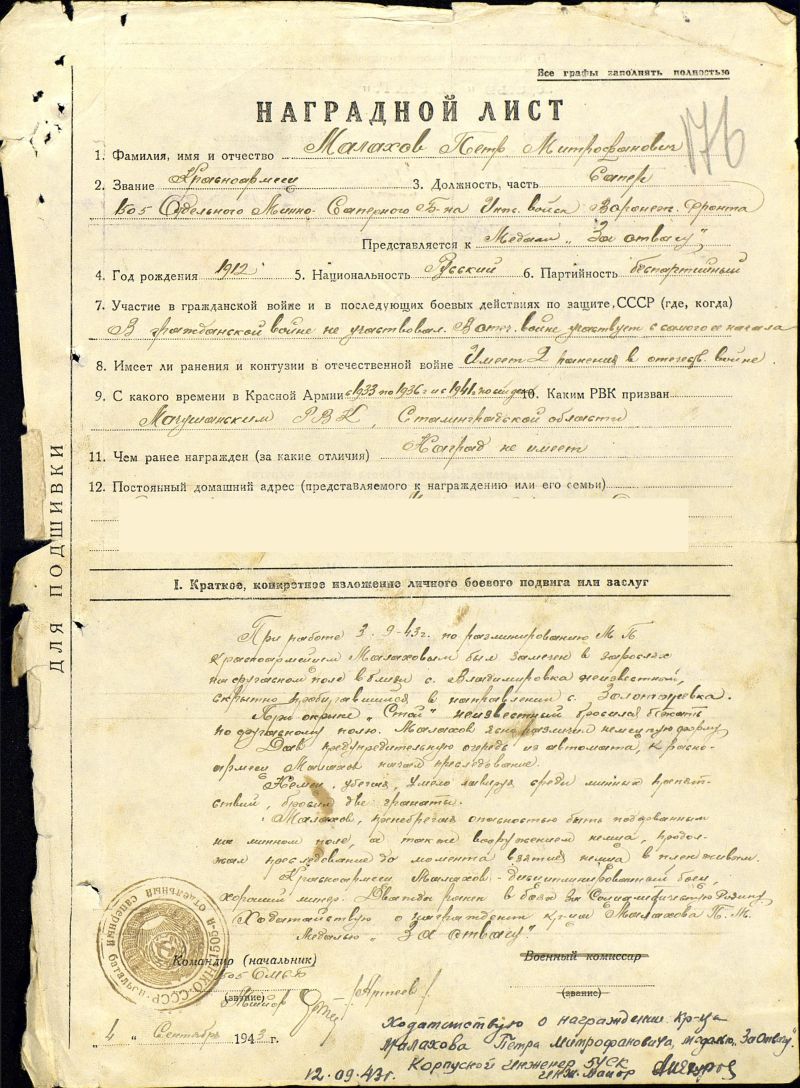 Все графы заполнять полностью
НАГРАДНОЙ ЛИСТ
176
1. Фамилия, имя и отчество Малахов Петр Митрофанович
2. Звание Красноармеец 3. Должность, часть Сапер
Отдельного Минно-Саперного Б-на Инж. войск Воронеж. Фронта
Представляется к Медали „За отвагу"
4. Год рождения 1912 5. Национальность Русский 6. Партийность беспартийный
7. Участие в гражданской войне и в последующих боевых действиях по защите СССР (где, когда)
В гражданской войне не участвовал. В отч. войне участвует с самого начала
8. Имеет ли ранения и контузии в отечественной войне Имеет 2 ранения в отечеств. войне.
9. С какого времени в Красной Армии с 1933 по 1936 г и с 1941 по сей день 10. Каким РВК призван
РВК, Сталинградской области
11. Чем ранее награжден (за какие отличия) Наград не имеет
12. Постоянный домашний адрес (представляемого к награждению или его семьи)
ДЛЯ ПОДШИВКИ
I. Краткое, конкретное изложение личного боевого подвига или заслуг
При работе 3.9-43г. по разминированию М П
красноармейцем Малаховым был замечен в зарослях
на поле вблизи с. Владимировка неизвестный,
скрытно пробиравшийся в направлении с.
При окрике „Стой" неизвестный бросился бежать
по полю. Малахов ясно различил немецкую форму
Дав предупредительную очередь из автомата, красно-
армеец Малахов начал преследование.
Немец, убегая, умело лавируя среди минных препят-
ствий, бросил две гранаты.
Малахов, пренебрегая опасностью быть подорванным
на минном поле, а также вооружением немца, продол-
жал преследование до момента взятия немца в плен живым.
Красноармеец Малахов - дисциплинированный боец,
хороший минер. Дважды ранен в боях за Социалистическую Родину
Ходатайствую о награждении кр-ца Малахова П. М.
Медалью „За отвагу"
Командир (начальник) Военный комиссар
ОМСБ
Майор /Артеев/
(звание) (звание)
„4" Сентябрь 1943 г.
Ходатайствую о награждении кр-ца
Малахова Петра Митрофановича, медалью „За Отвагу"
Корпусной инженер 5УСК
12.09.43г. инж. майор